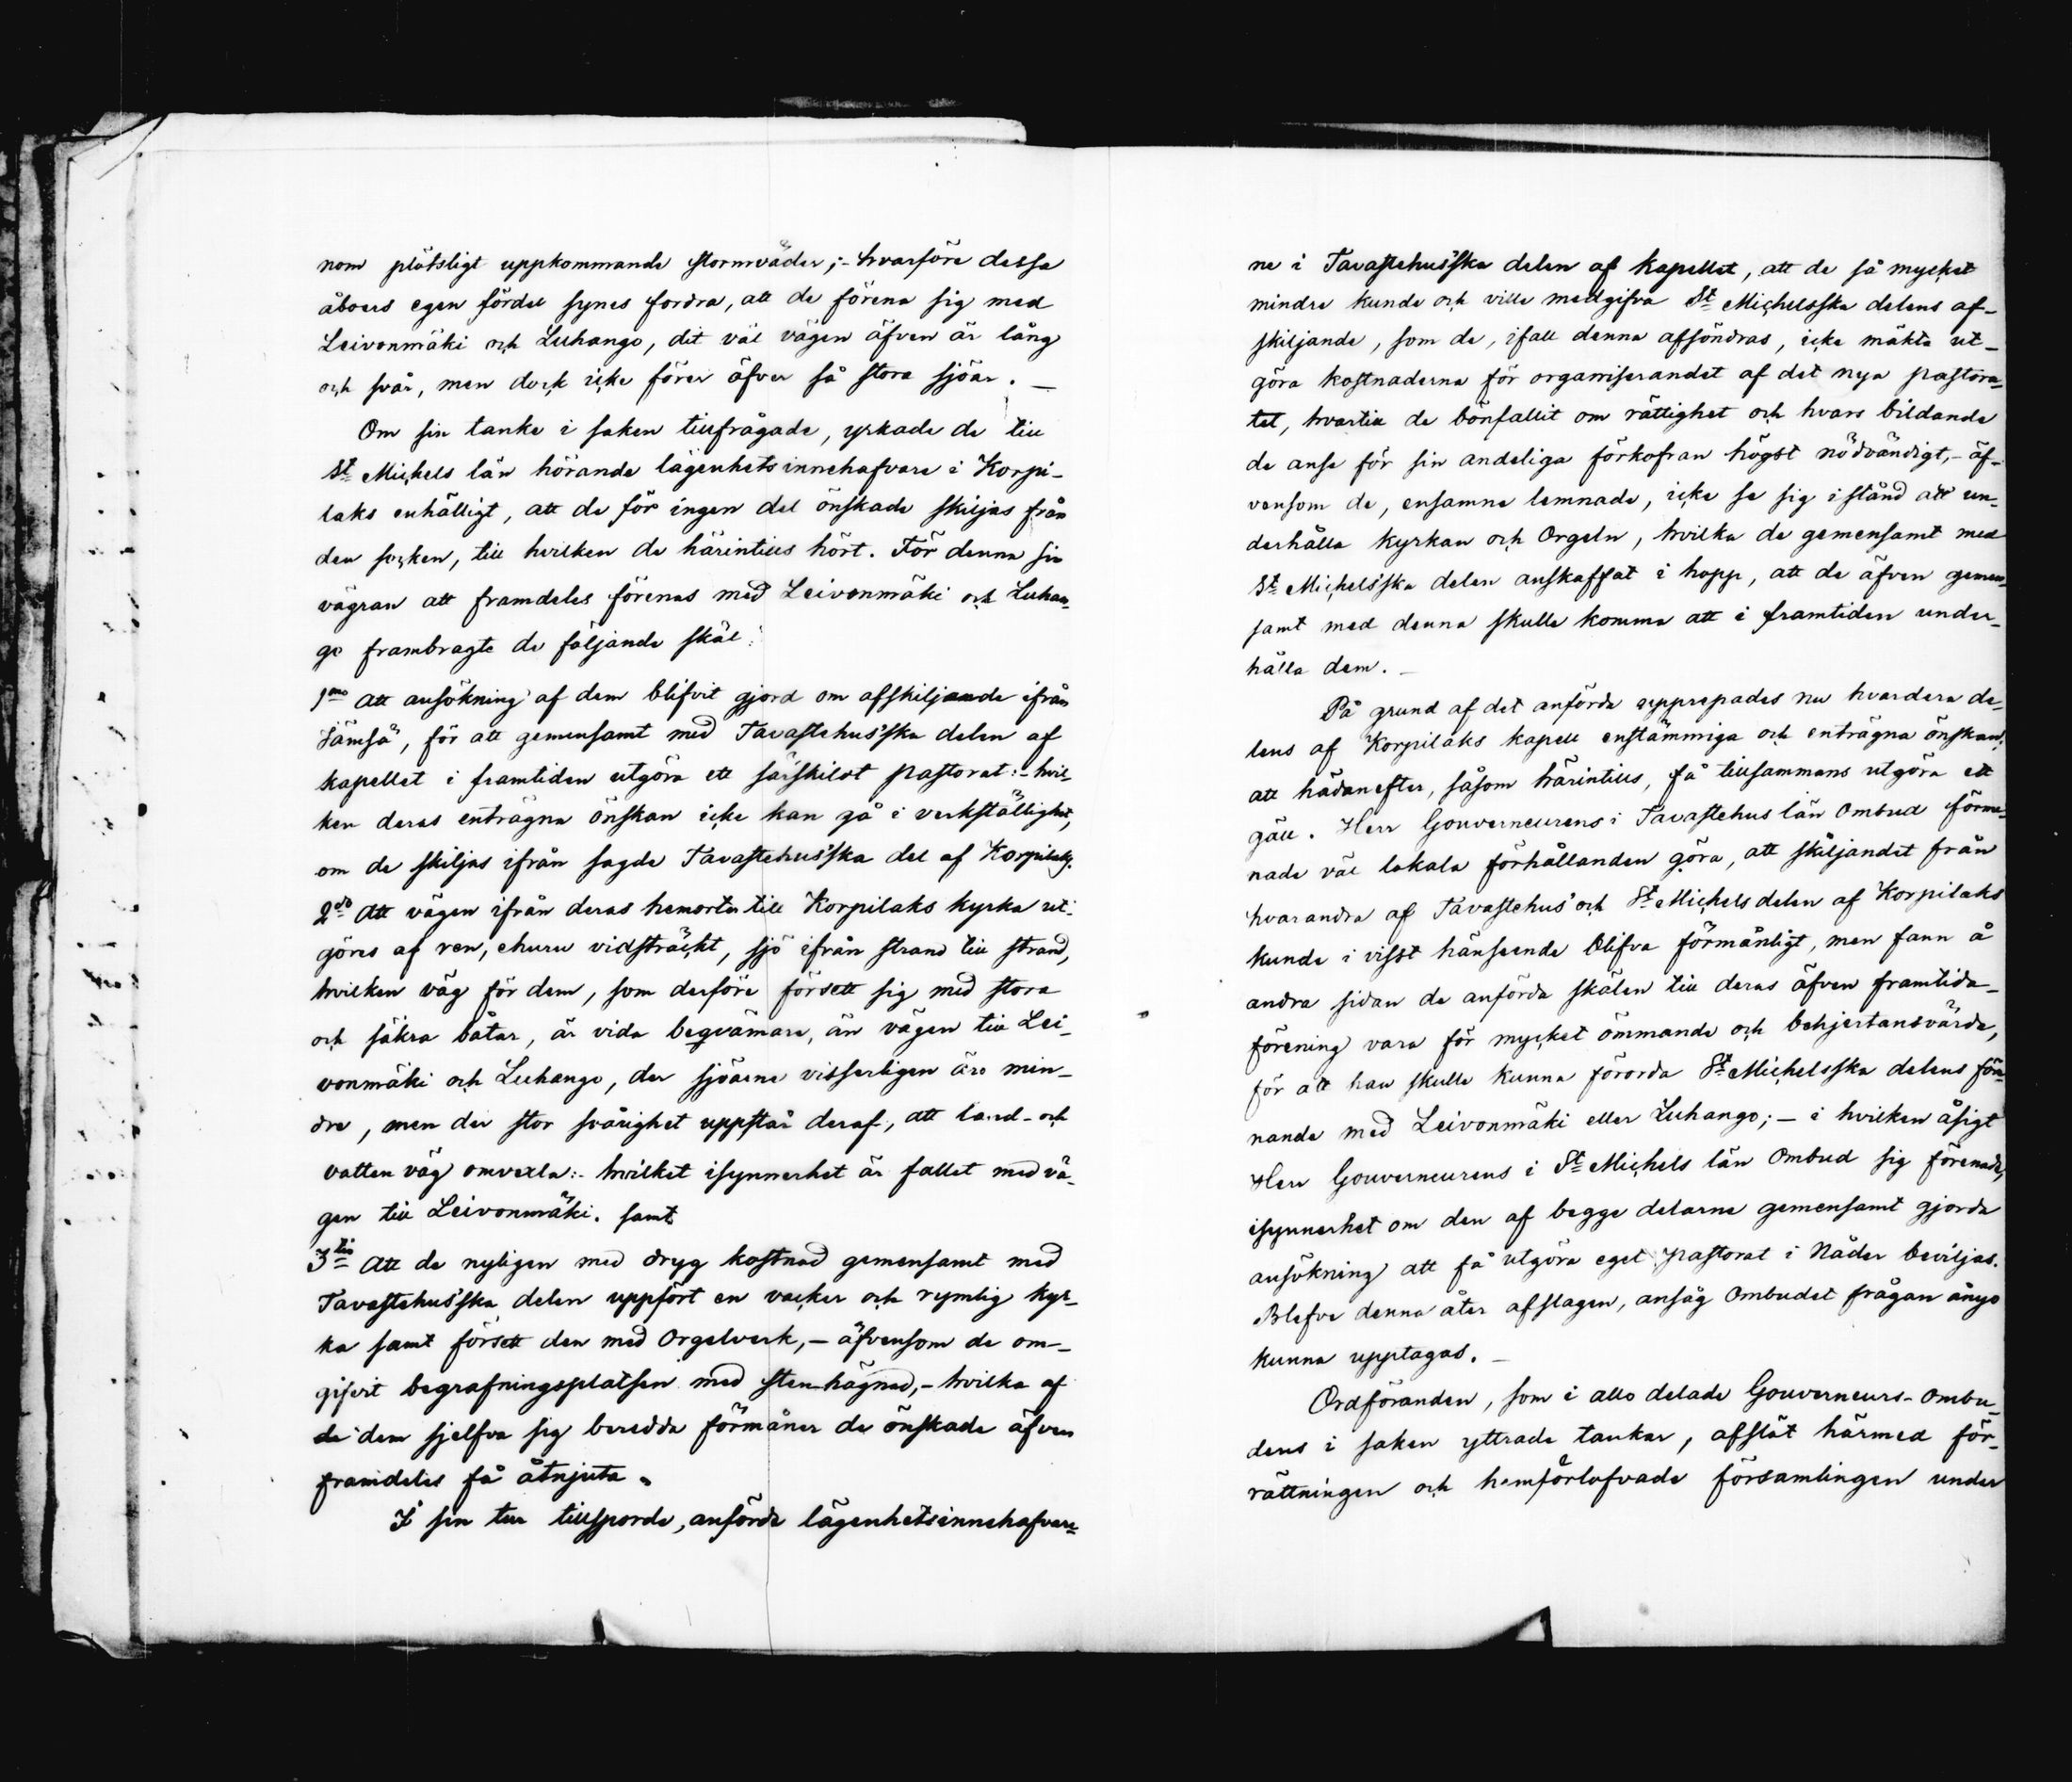 nom plötsligt uppkommande stormväder;- hvarföre dessa
åboers egen fördel synes fordra, att de förena sig med
Leivonmäki och Luhango, dit väl vägen äfven är lång
och svår, men dock icke förer öfver så stora sjöar. _
Om sin tanke i saken tillfrågade, yrkade de till
St Michels län hörande lägenhetsinnehafvare i Korpi-
laks enhälligt, att de för ingen del önskade skiljas från
den socken, till hvilken de härintills hört. För denna sin
vägran att framdeles förenas med Leivonmäki och Luhan-
go frambragte de följande skäl:
1mo Att ansökning af dem blifvit gjord om afskiljande ifrån
Jämsä, för att gemensamt med Tavastehus'ska delen af
kapellet i framtiden utgöra ett särskildt pastorat:- hvil-
ken deras enträgna önskan icke kan gå i verkställighet,
om de skiljas ifrån sagde Tavastehus'ska del af Korpilaks.
2do Att vägen ifrån deras hemorter till Korpilaks kyrka ut-
göres af ren, ehuru vidsträckt, sjö ifrån strand till strand,
hvilken väg för dem, som derföre försett sig med stora
och säkra båtar, är vida beqvämare, än vägen till Lei-
vonmäki och Luhango, der sjöarne visserligen äro min-
dre, men der stor svårighet uppstår deraf, att land- och
vatten väg omvexla:- hvilket isynnerhet är fallet med vä-
gen till Leivonmäki. samt
3tio Att de nyligen med dryg kostnad gemensamt med
Tavastehus'ska delen uppfört en vacker och rymlig kyr-
ka samt försett den med Orgelverk,- äfvensom de om-
gifvit begrafningsplatsen med stenhägnad,- hvilka af
de dem sjelfva sig beredda förmåner de önskade äfven
framdeles få åtnjuta.
I sin tur tillsporde, anförde lägenhetsinnehafvare-
ne i Tavastehus'ska delen af kapellet, att de så mycket
mindre kunde och ville medgifva St Michelsska delens af-
skiljande, som de, ifall denna afsöndras, icke mäkta ut-
göra kostnaderna för organiserandet af det nya pastora-
tet, hvartill de bönfallit om rättighet och hvars bildande
de anse för sin andeliga förkofran högst nödvändigt,- äf-
vensom de, ensamne lemnade, icke se sig i stånd att un-
derhålla kyrkan och Orgeln, hvilka de gemensamt med
St Michels'ska delen anskaffat i hopp, att de äfven gemen-
samt med denna skulle komma att i framtiden under-
hålla dem. _
På grund af det anförda upprepades nu hvardera de-
lens af Korpilaks kapell enstämmiga och enträgna önskan,
att hädanefter, såsom härintills, få tillsammans utgöra ett
gäll. Herr Gouverneurens i Tavastehus län Ombud förme-
nade väl lokala förhållanden göra, att skiljandet från
hvarandra af Tavastehus och St Michels delen af Korpilaks
kunde i visst hänseende blifva förmånligt, men fann å
andra sidan de anförda skälen till deras äfven framtida
förening vara för mycket ömmande och behjertansvärda,
för att han skulle kunna förorda St Michelsska delens före-
nande med Leivonmäki eller Luhango; - i hvilken åsigt
Herr Gouverneurens i St Michels län Ombud sig förenade,
isynnerhet om den af begge delarne gemensamt gjorda
ansökning att få utgöra eget pastorat i Nåder beviljas.
Blefve denna åter afslagen, ansåg Ombudet frågan ånyo
kunna upptagas. _
Ordföranden, som i allo delade Gouverneurs-Ombu-
dens i saken yttrade tankar, afslöt härmed för-
rättningen och hemförlofvade församlingen under